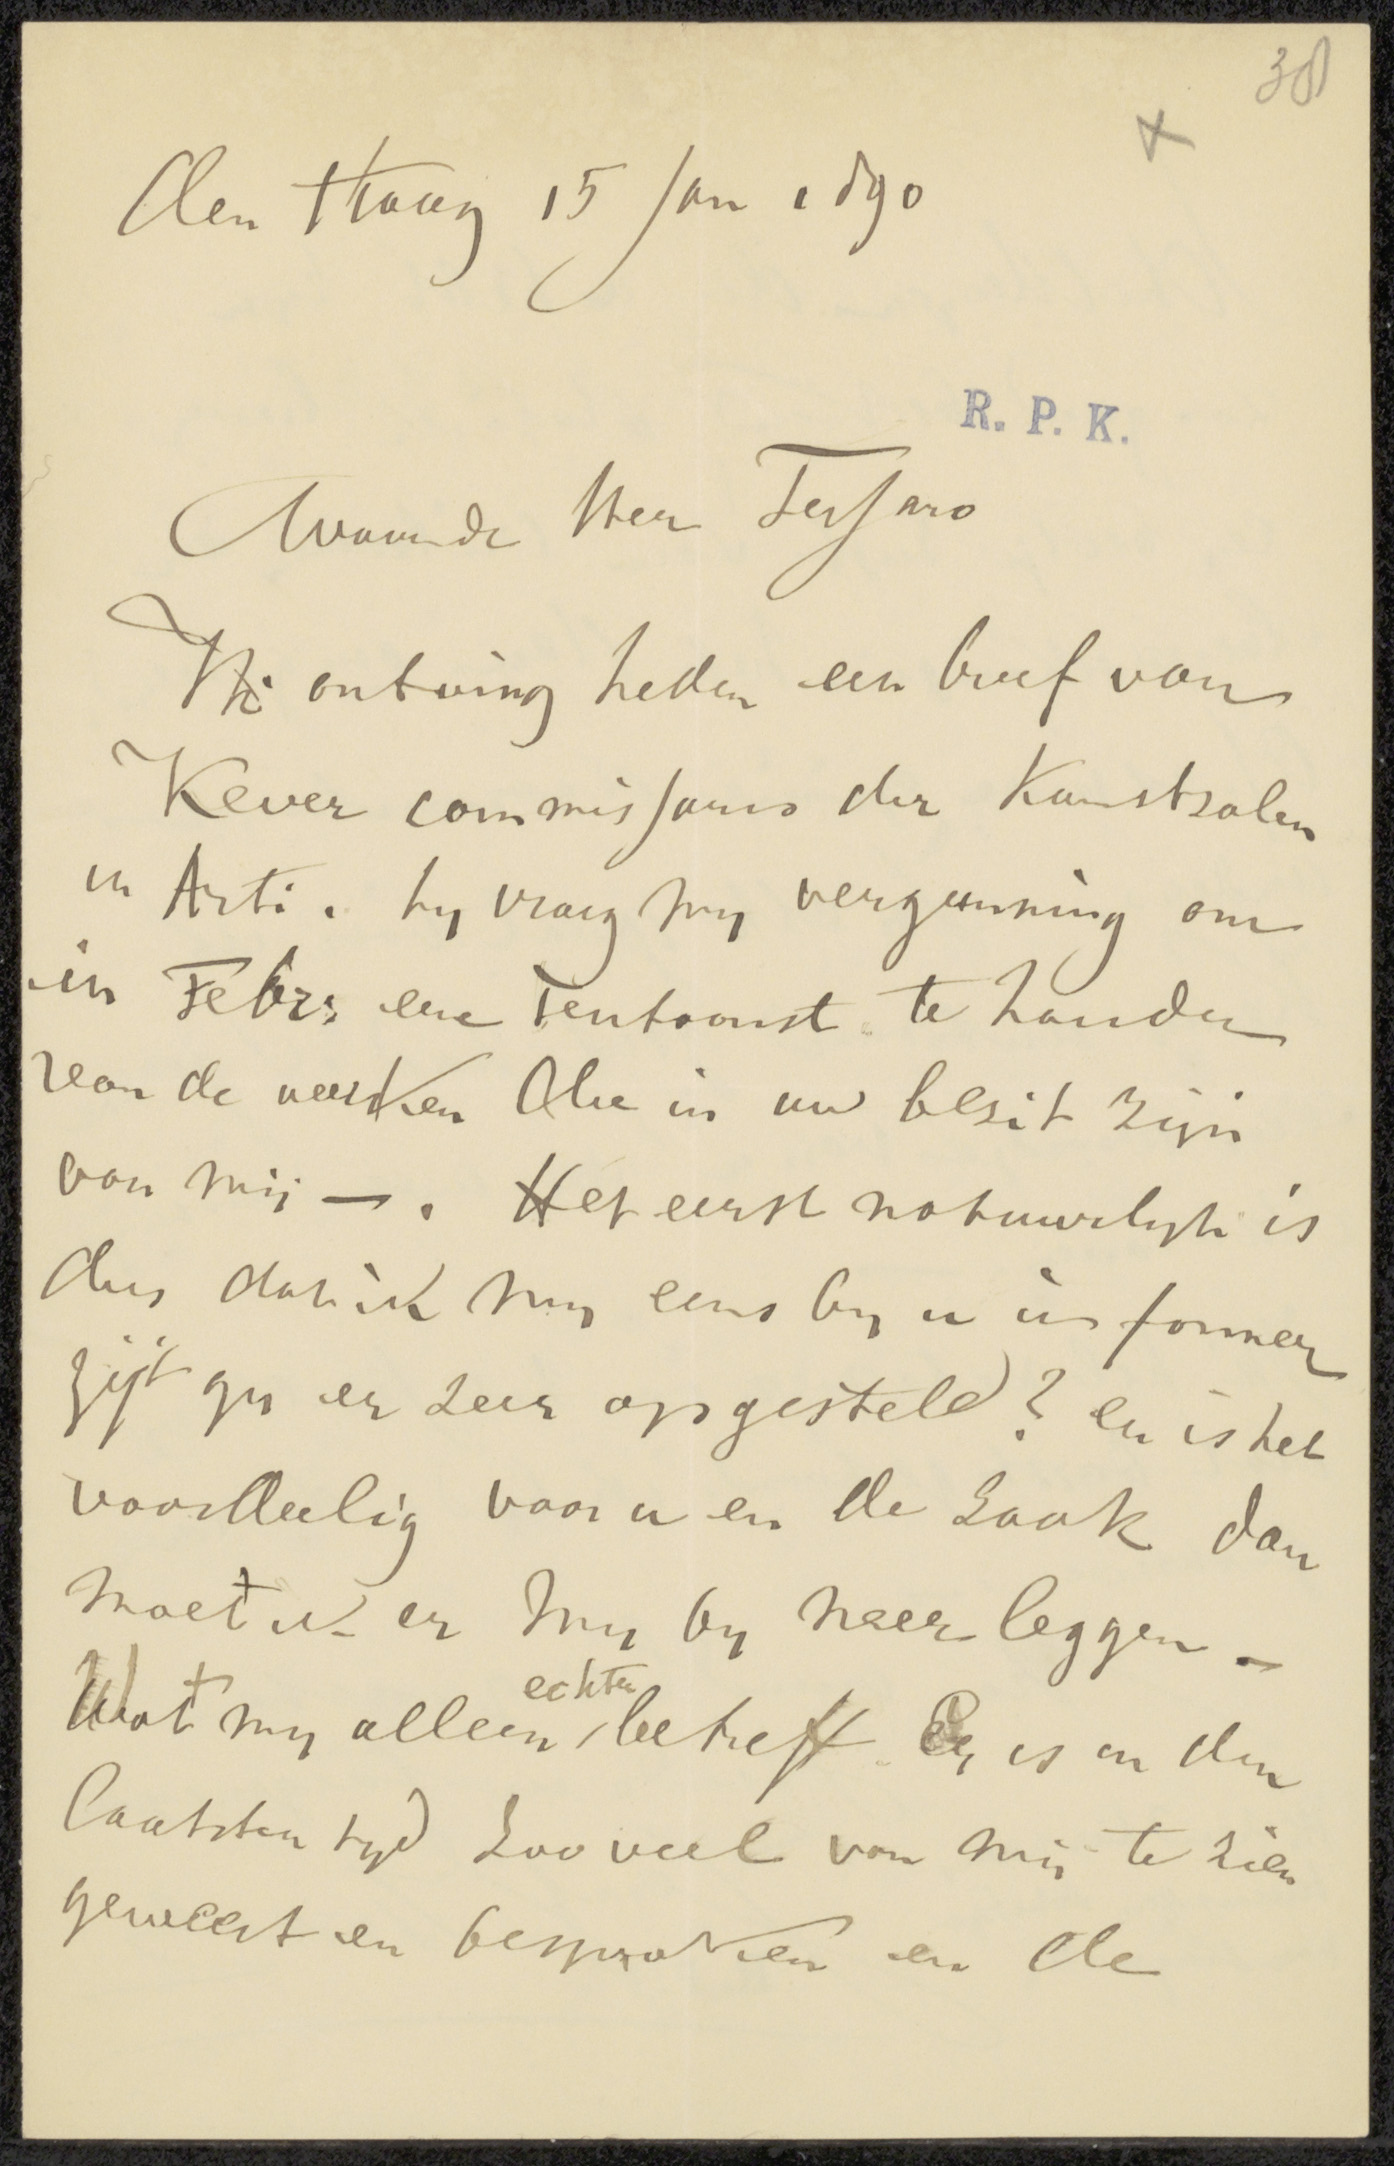 38
Den Haag 15 Jan 1890
R. P. K.
Waarde Heer Tersaro
Ik ontving heden een brief van
Kever commissaris der Kunstzalen
in Arti. hy vraag my vergunning om
in Febr: eene Tentoonst. te houden
van de werken die in uw bezit zijn
van mij —. Het eerst natuurlyk is
dus dat ik my eens by u informeer
zijt gy er zeer op gesteld? en is het
voordeelig voor u en de zaak dan
moet ik er my by neer leggen —
Wat my alleen echter betreft. Er is in den
laatsten tyd zoo veel van mij te zien
geweest en besproken en de